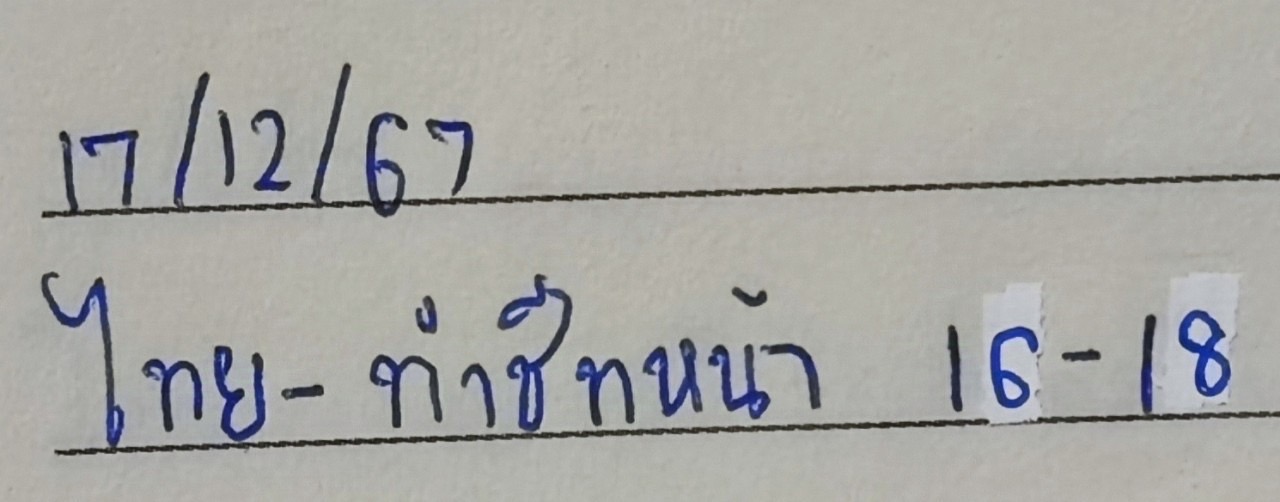 17/12/67
ไทย - ทำชีทหน้า 16-18